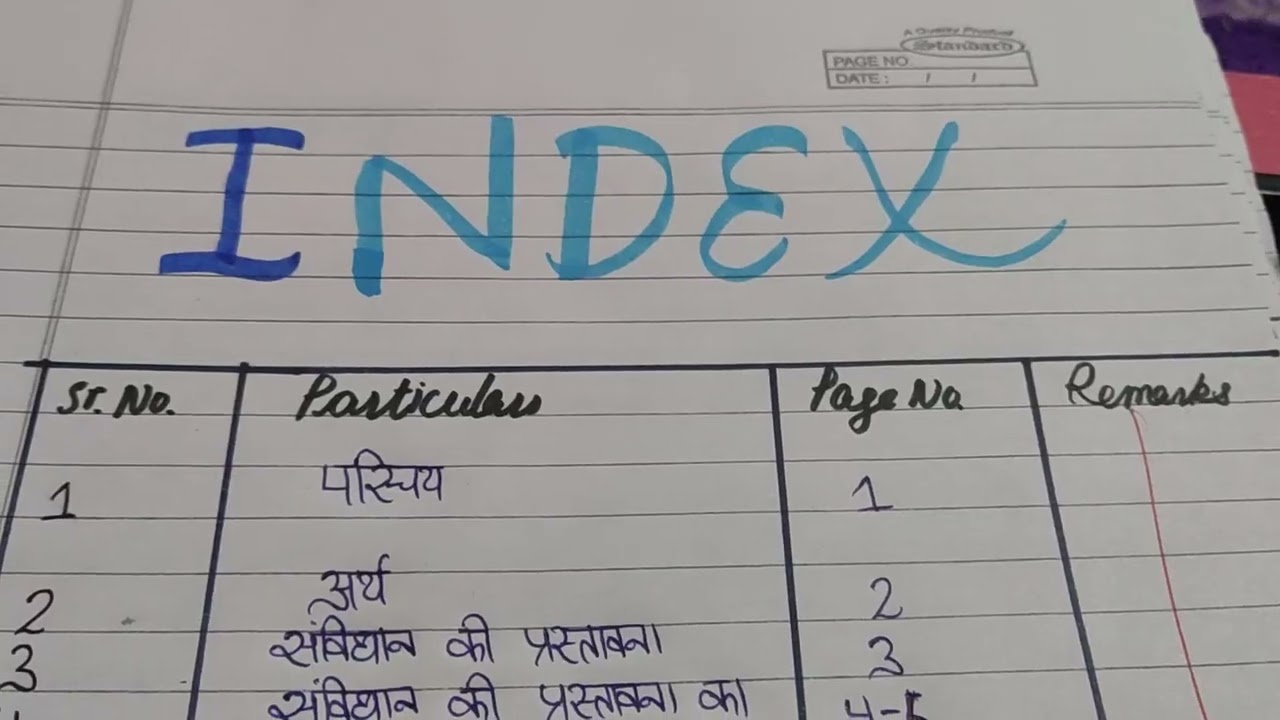 A Quality Product
Standard
PAGE NO.
DATE : / /
INDEX
Sr. No. Particulars Page No. Remarks
1 परिचय 1
2 अर्थ 2
3 संविधान की प्रस्तावना 3
संविधान की प्रस्तावना का 4-5